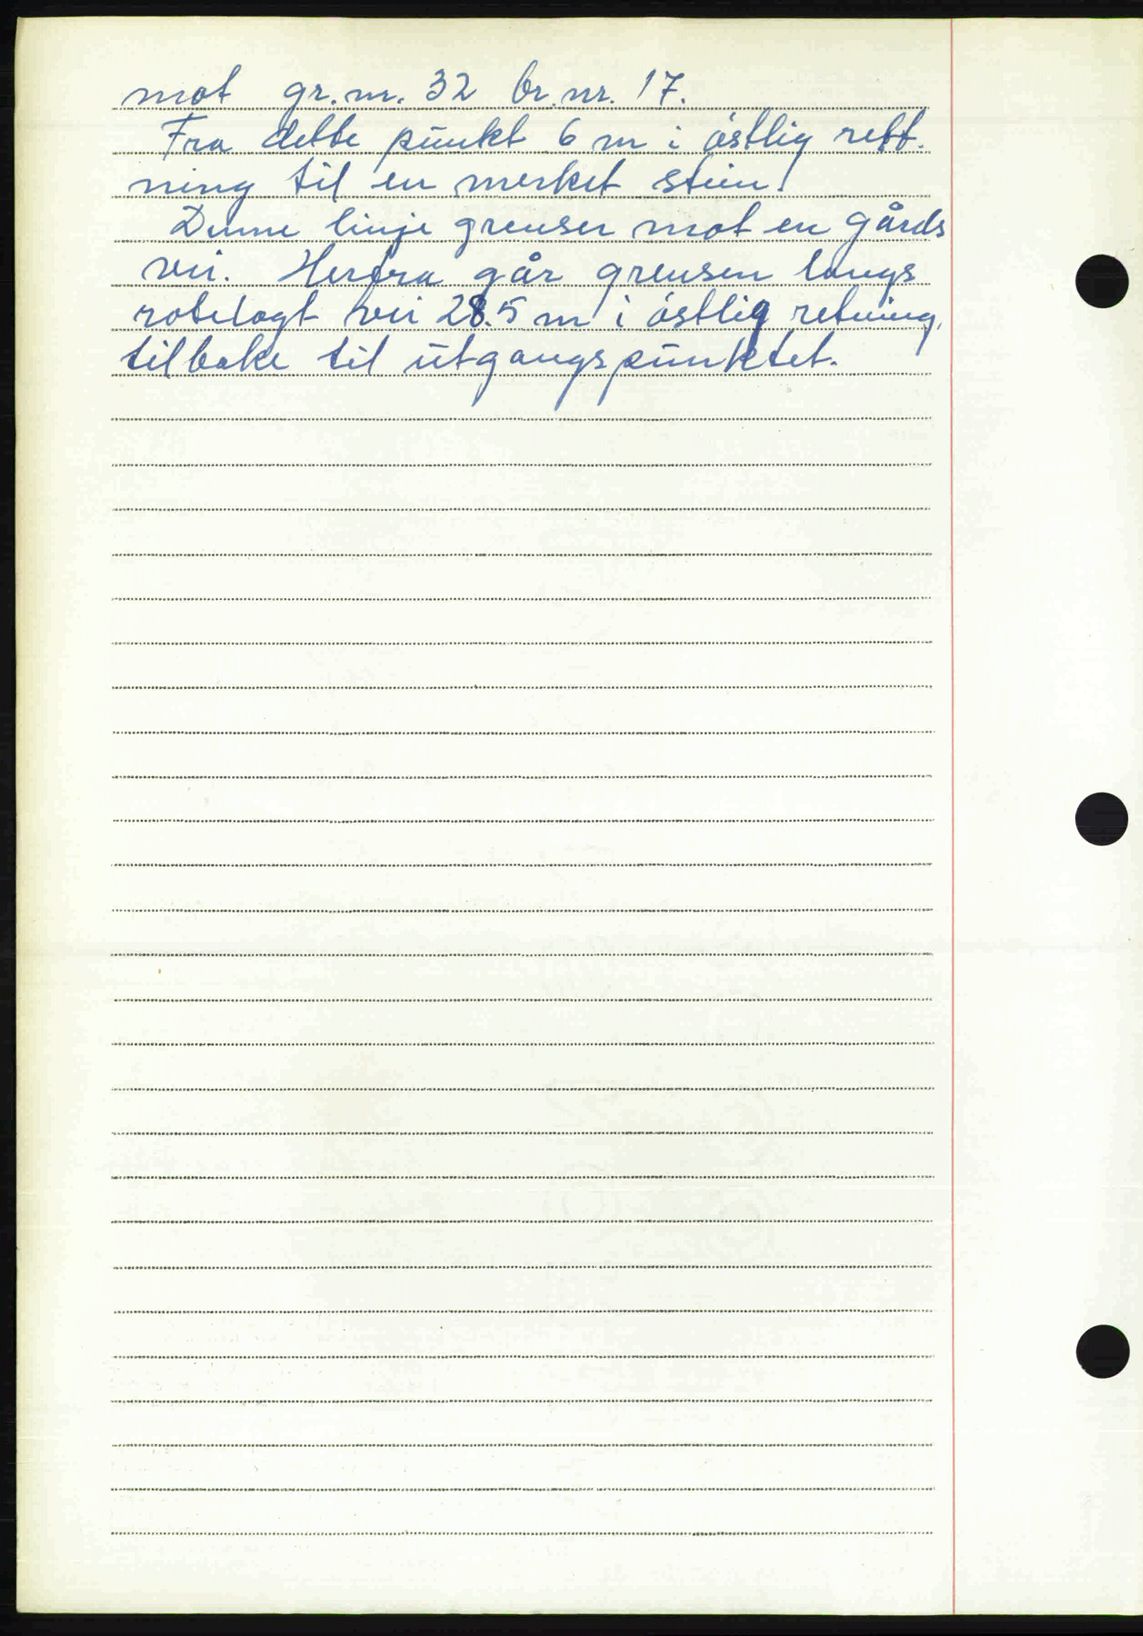 mot gr.nr. 32 br.nr. 17.
Fra dette punkt 6 m i östlig rett.
ning til en merket stein.
Denne linje grenser mot en gårds
vei. Herfra går grensen langs
rotelagt vei 28.5 m i östlig retning,
tilbake til utgangspunktet.